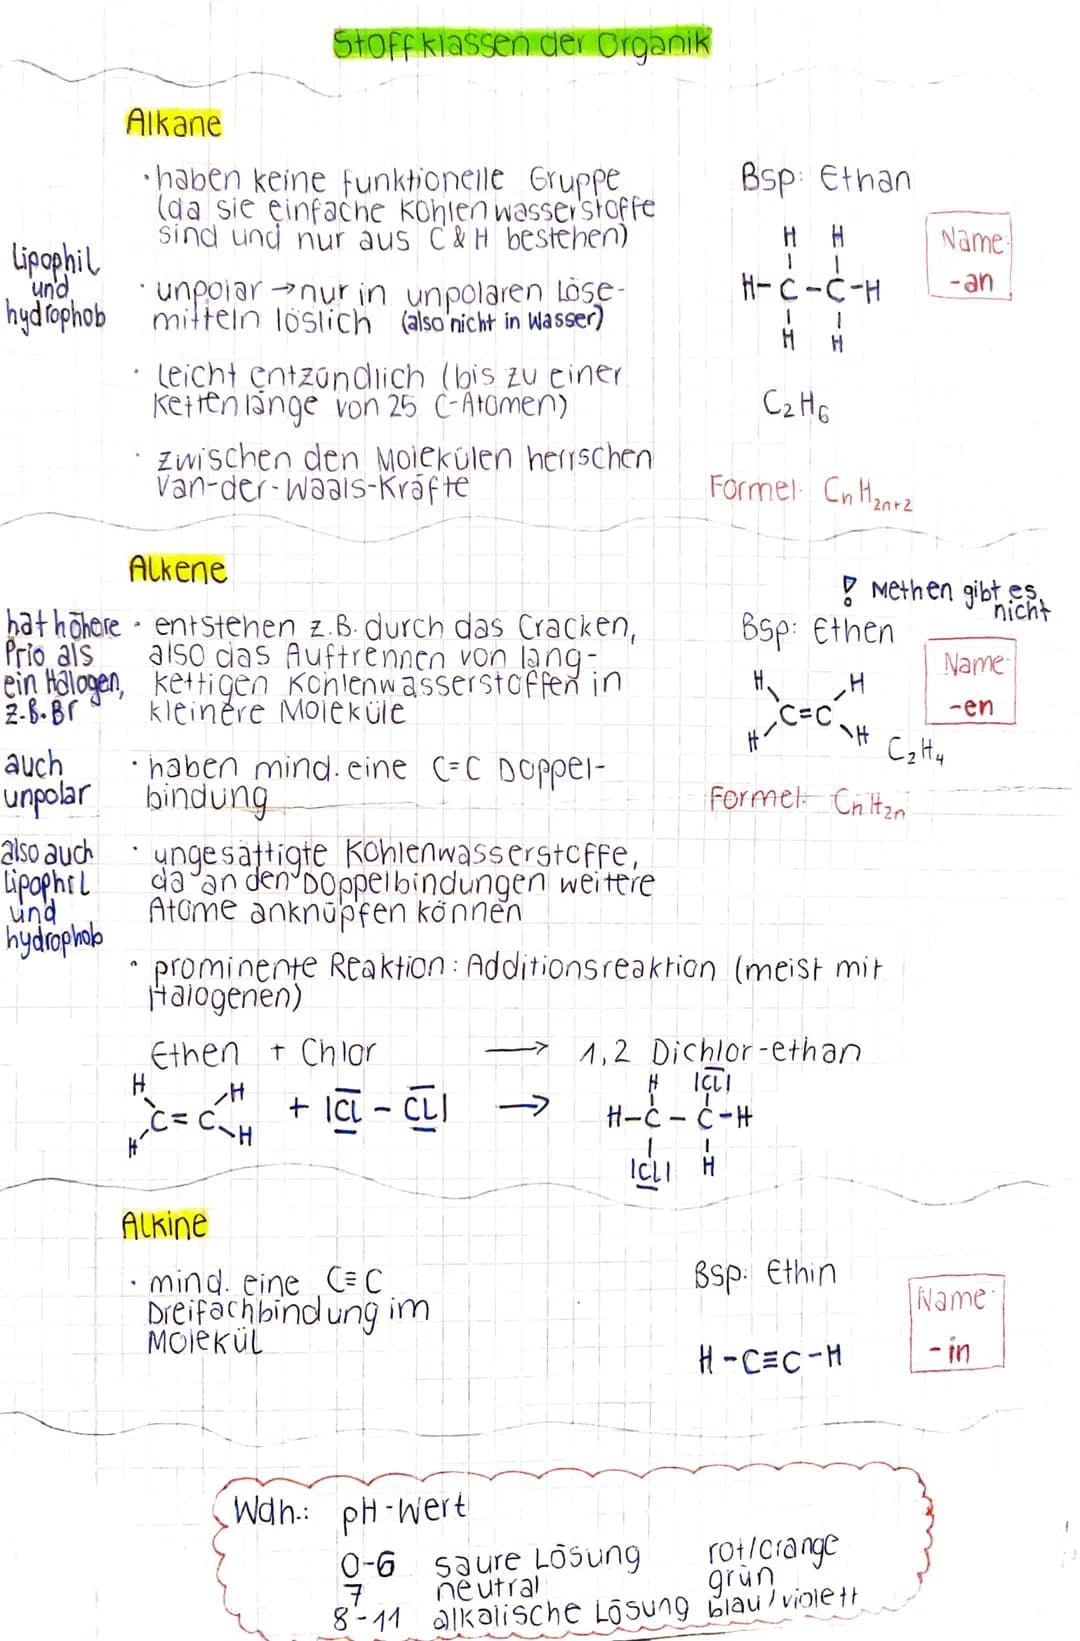 Stoffklassen der Organik
Alkane
· haben keine funktionelle Gruppe
(da sie einfache Kohlenwasserstoffe
sind und nur aus C & H bestehen)
Lipophil
und
hydrophob
· unpolar → nur in unpolaren Löse-
mitteln löslich (also nicht in Wasser)
· leicht entzündlich (bis zu einer
Kettenlänge von 25 C-Atomen)
· zwischen den Molekülen herrschen
Van-der-Waals-Kräfte
Bsp: Ethan
H H
H-C-C-H
H H
C₂H₆
Name:
-an
Formel: CnH2n+2
Alkene
hat höhere
Prio als
ein Halogen,
z.B. Br
· entstehen z.B. durch das Cracken,
also das Auftrennen von lang-
kettigen Kohlenwasserstoffen in
kleinere Moleküle
auch
unpolar
· haben mind. eine C=C Doppel-
bindung
also auch
Lipophil
und
hydrophob
· ungesättigte Kohlenwasserstoffe,
da an den Doppelbindungen weitere
Atome anknüpfen können
! Methen gibt es
nicht
Bsp: Ethen
H H
C=C
H H
C₂H₄
Name:
-en
Formel: CnH2n
· prominente Reaktion: Additionsreaktion (meist mit
Halogenen)
Ethen + Chlor → 1,2 Dichlor-ethan
H H H |Cl|
C=C + |Cl - Cl| → H-C-C-H
H H |Cl| H
Alkine
· mind. eine C≡C
Dreifachbindung im
Molekül
Bsp: Ethin
H-C≡C-H
Name:
-in
Wdh.: pH-Wert
0-6 saure Lösung rot/orange
7 neutral grün
8-11 alkalische Lösung blau/violett